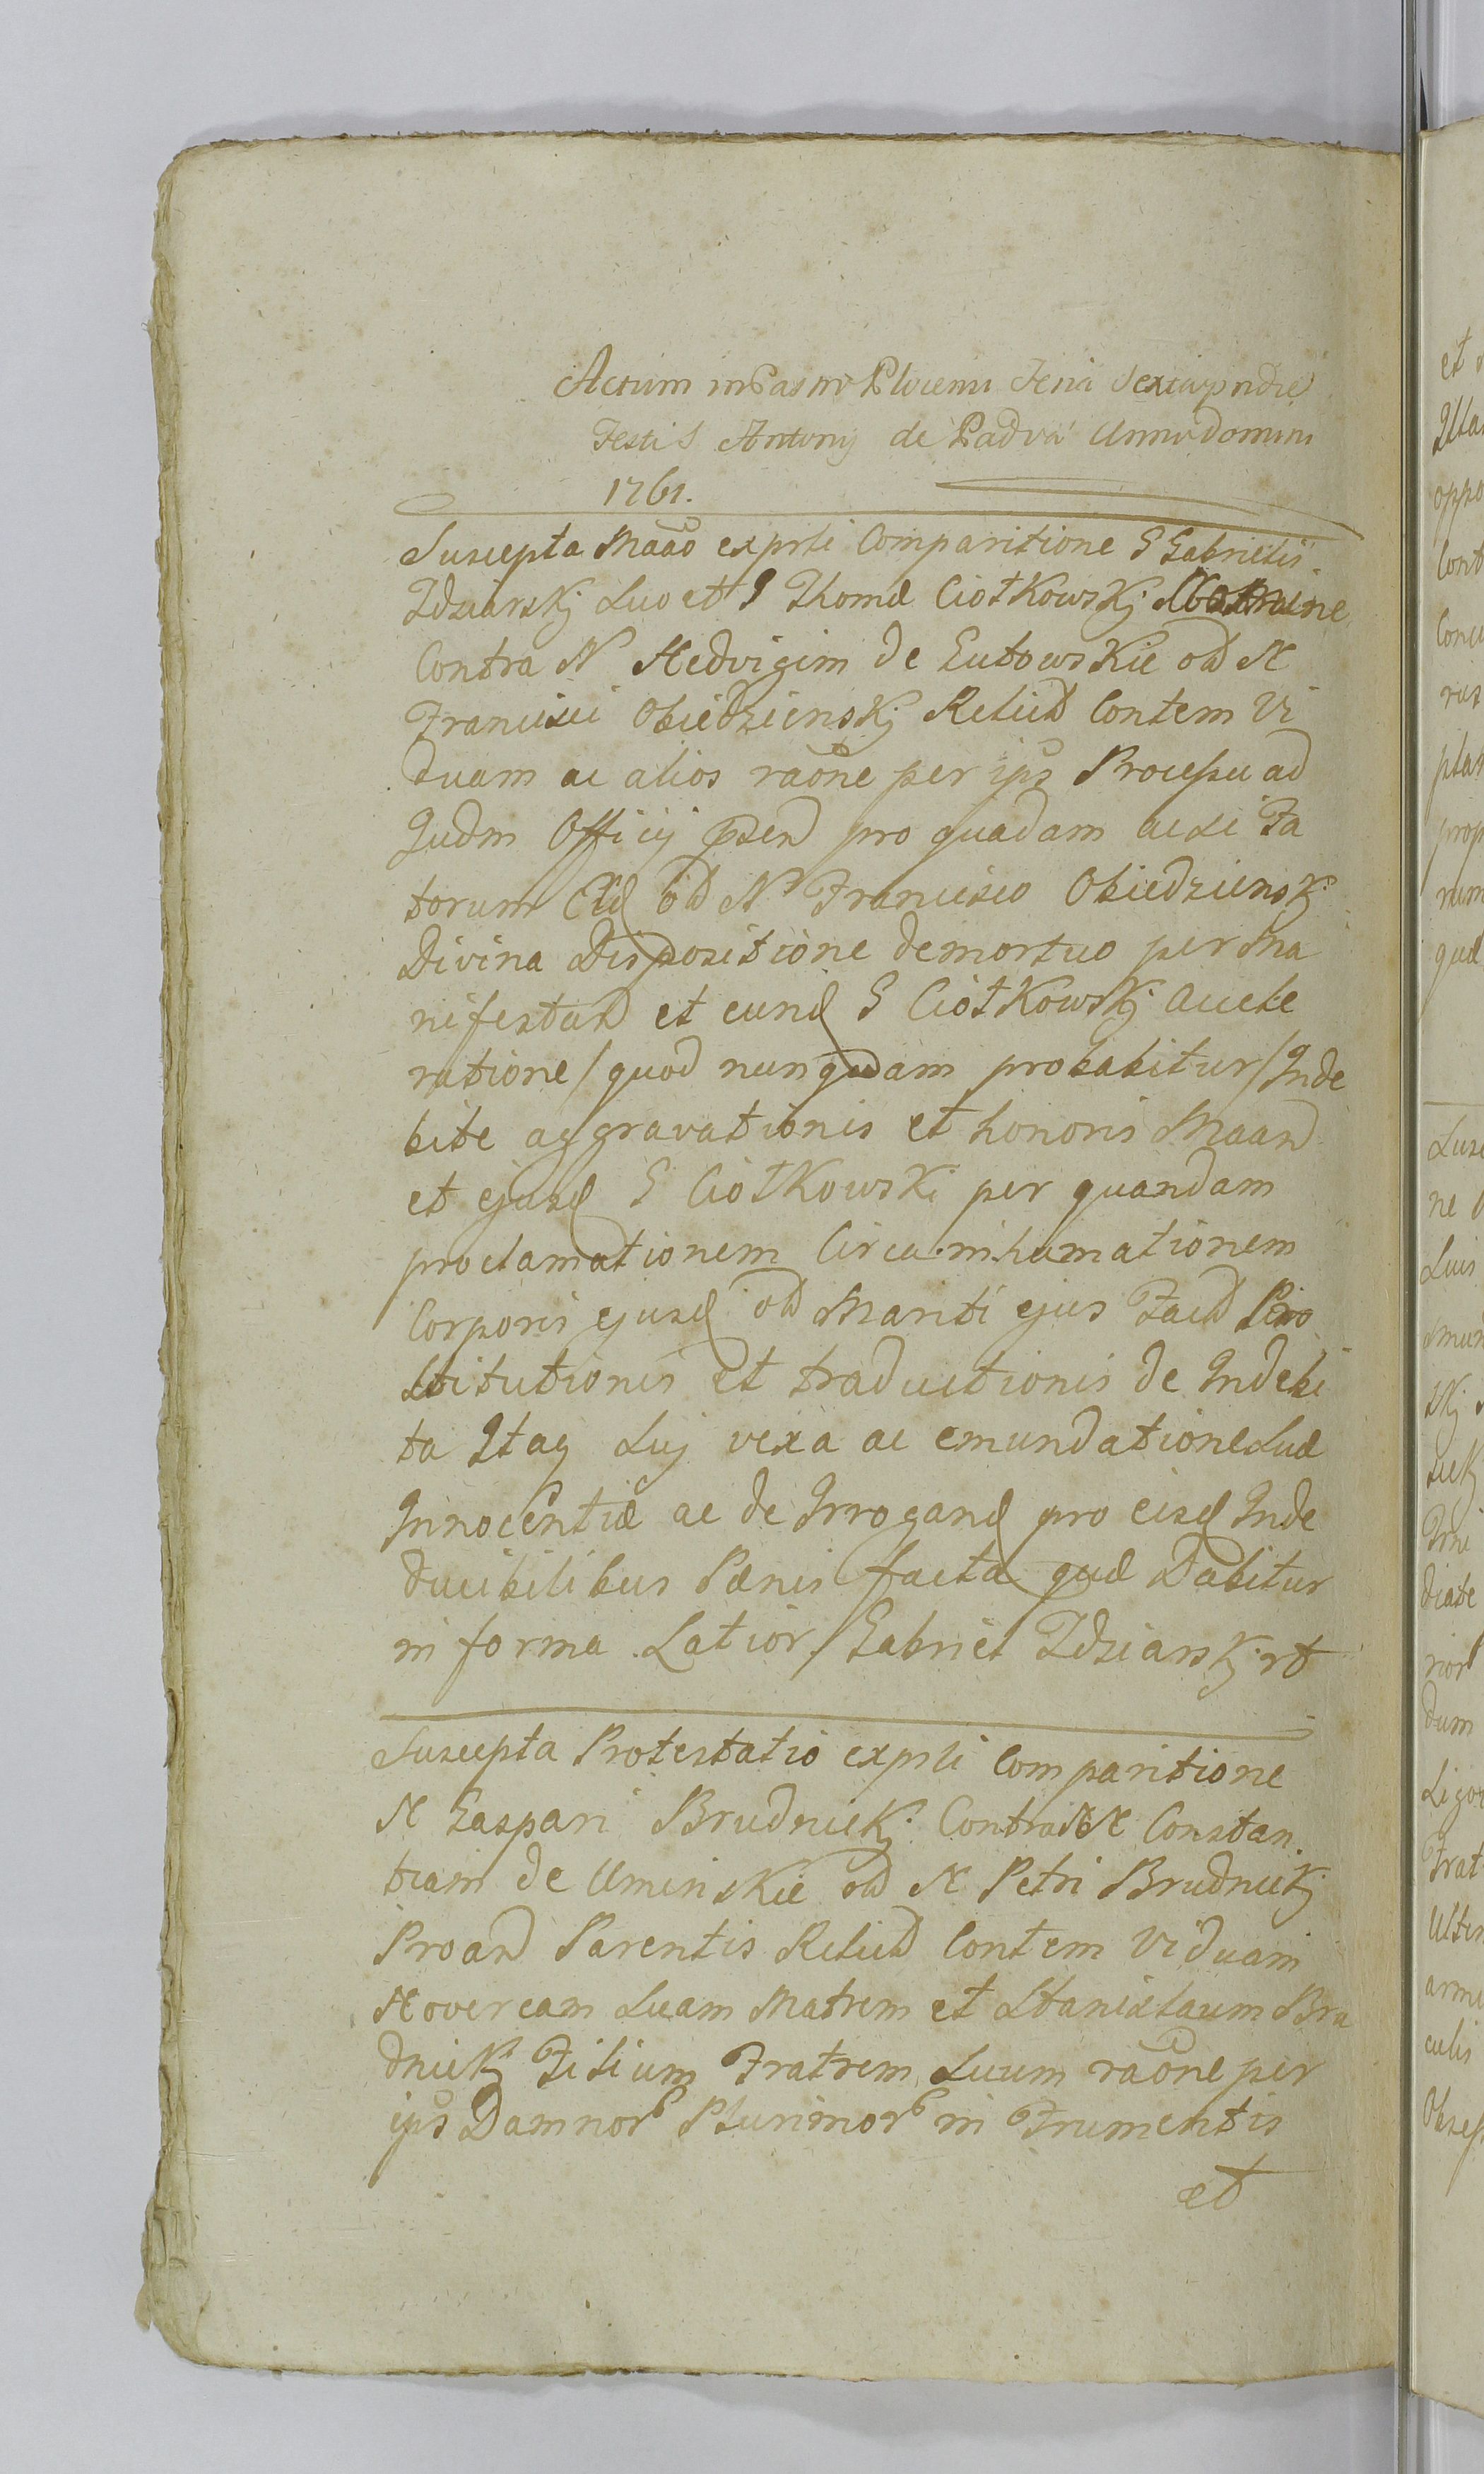 Actum in Castro Plocensi Feria Sexta pridie
Festi S Antonij de Padva Anno Domini
1761.
Suscepta Maao exprti Comparitione G Gabrielis
Idziarskj Suo et G Thomæ Ciotkowskj Nomine
Contra N Hedvigim de Gutowskie od N
Francisci Obiedzienskj Relict Contem Vi
duam ac alios raone per ips Processu ad
Judm Officij pro quadam acsi Fa
torum od N Francisco Obiedziensk
Divina Dispositione demortuo per Ma
nifestand et eund G Ciotkowskj accele
ratione / quod nunquam probabitur / Inde
bite aggravationis et honoris Maand
et ejusd G Ciotkowski per quandam
proclamationem Circa inhumationem
Corporis ejusd od Mariti ejus Fact Pro
stitutionis et traductionis de Indebi
ta Itaq Suj vexa ac emundatione Suæ
Innocentiæ ac de Irrogand pro eisd Inde
ducibilibus Pænis facta quæ Dabitur
in forma Latior / Gabriel Idziarskj
Suscepta Protestatio exprti Comparitione
N Gaspari Brudnickj Contra NN Constan
tiam de Uminskie od N Petri Brudnickj
Proand Parentis Relict Contem Viduam
Novercam Suam Matrem et Stanislaum Bru
dnickj Filium Fratrem Suum raone per
ips Damnor Plurimor in Frumentis
et
et
Illa
oppo
Cont
Concu
plar
prop
rum
quæ
Susc
ne
Suis
diate
rior
dum
Ligo
Frat
armi
culis